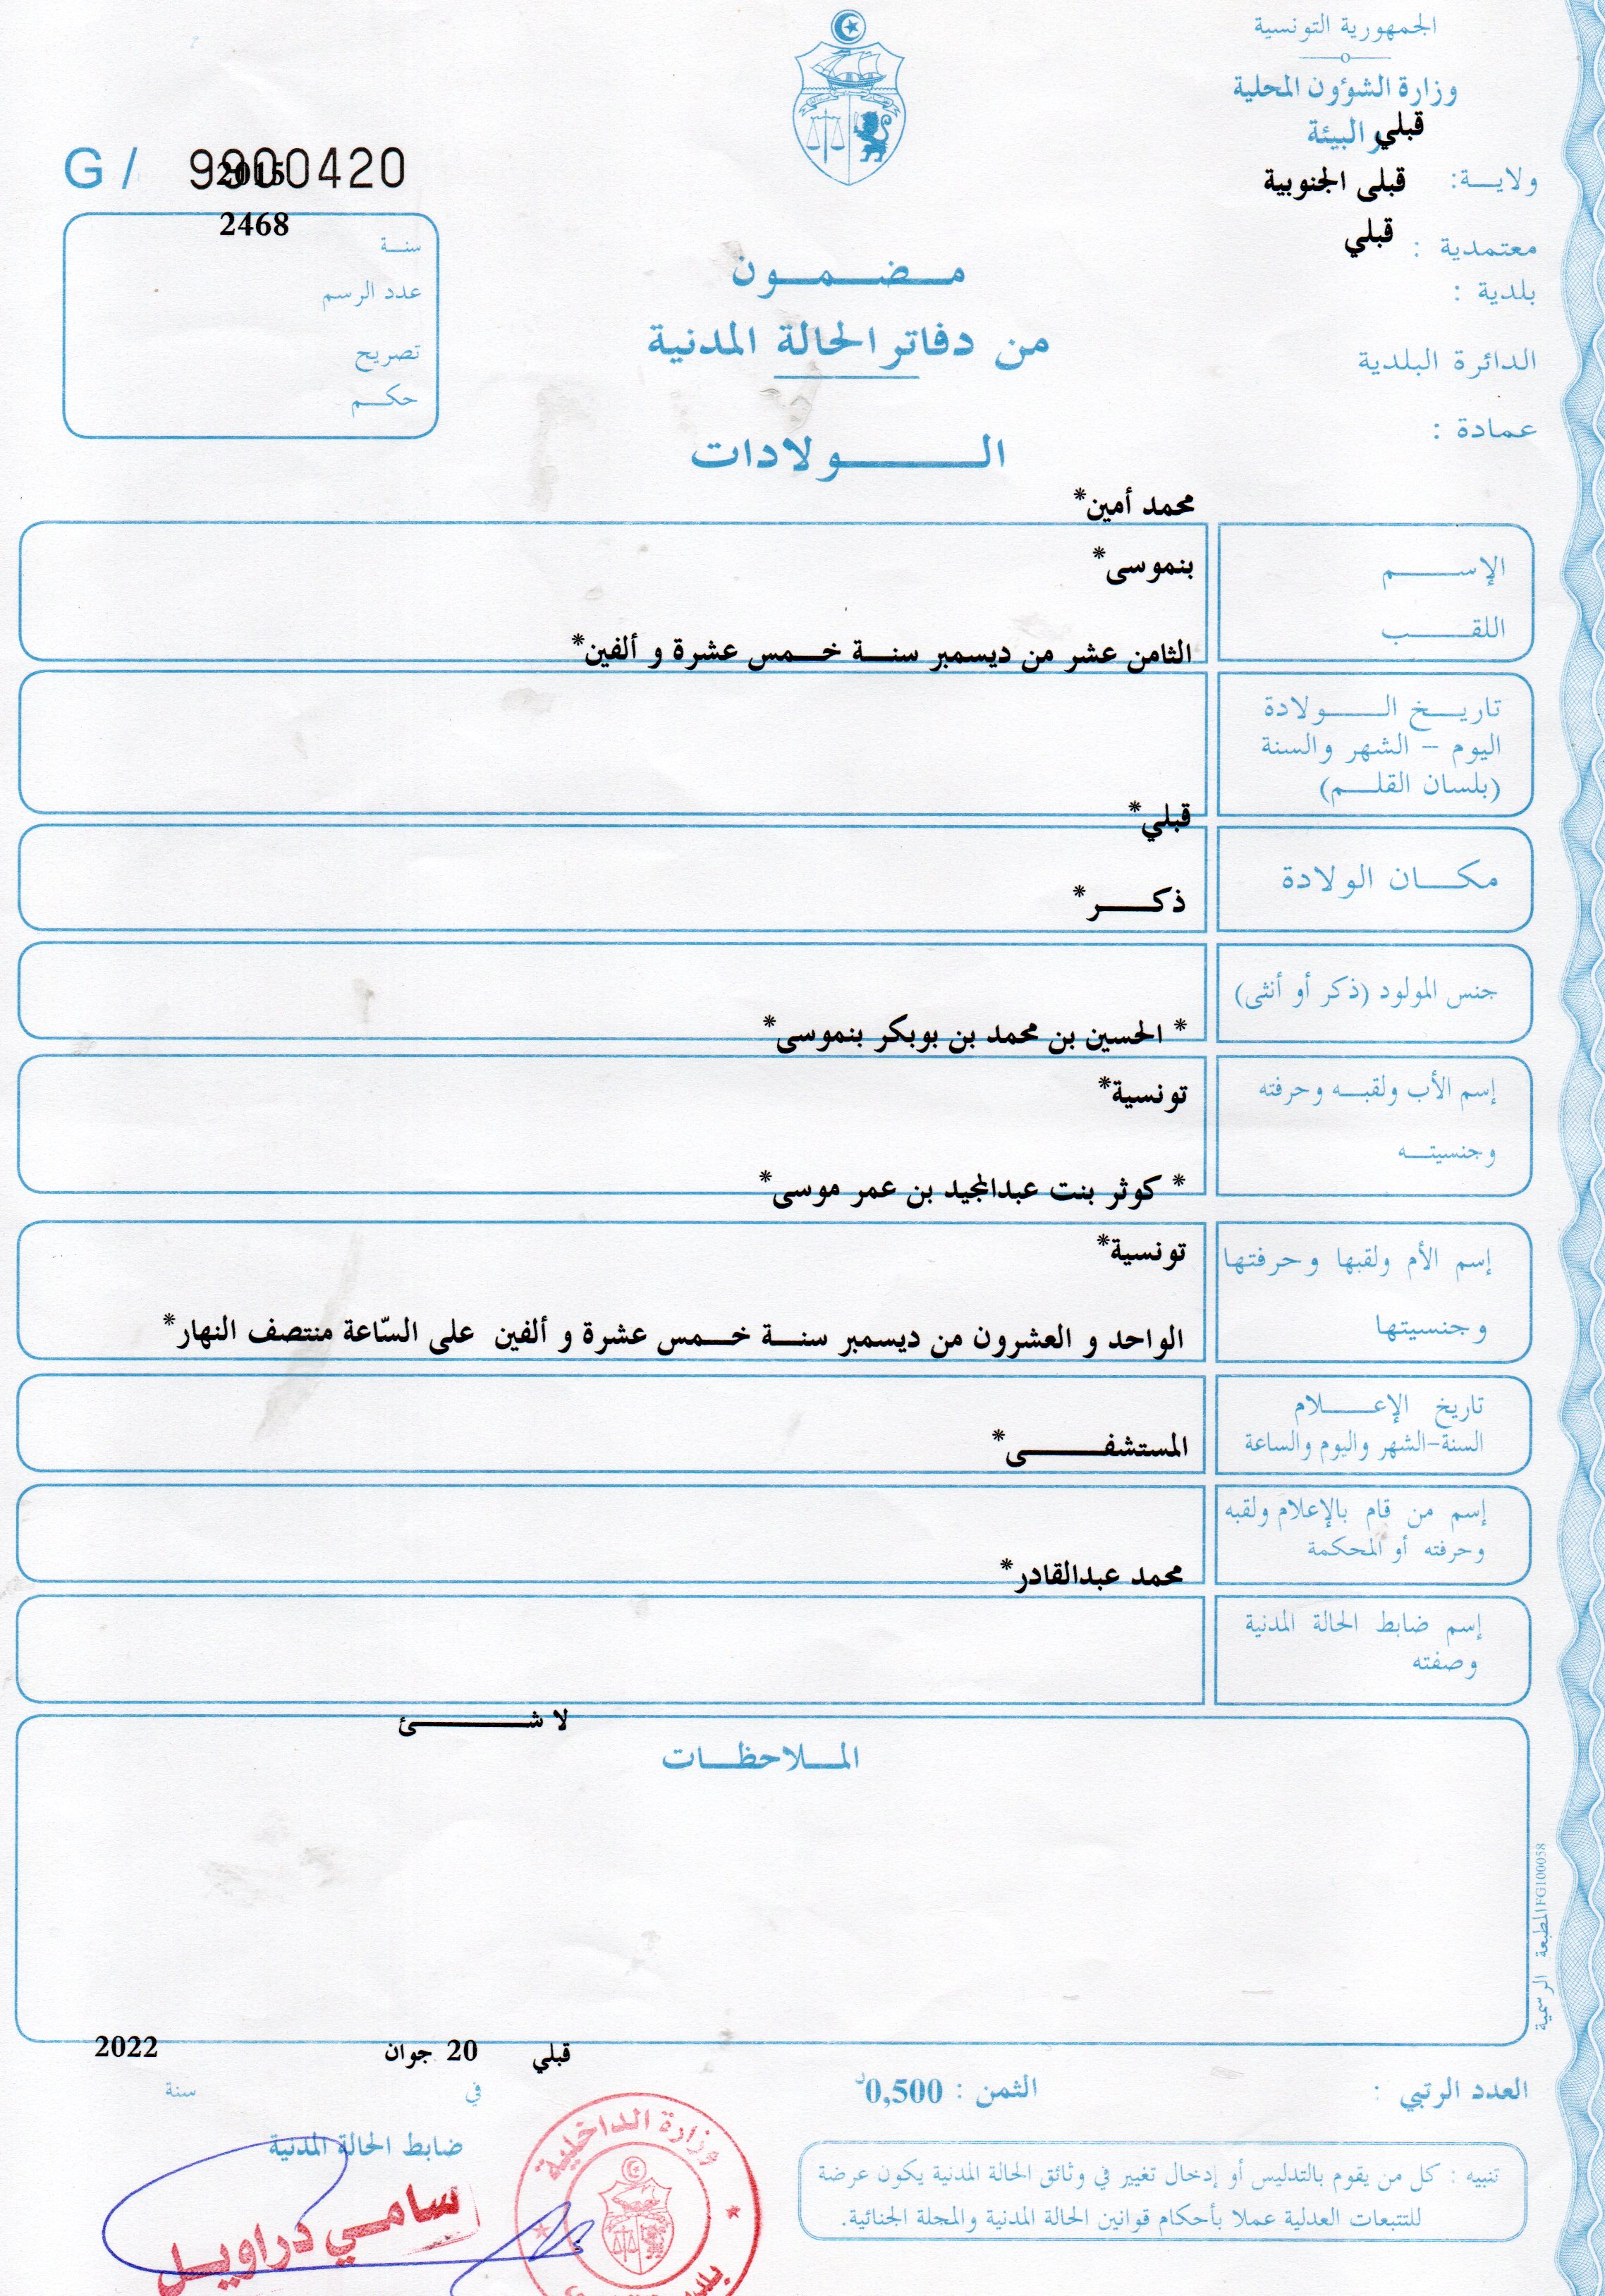 الجمهورية التونسية
وزارة الشؤون المحلية
والبيئة
قبلي
ولايـــة: قبلى الجنوبية
معتمدية : قبلي
بلدية :
الدائرة البلدية
عمادة :
G / 9900420
2015
2468
سنــة
عدد الرسم
تصريح
حكـــم
مـــضـــمـــون
من دفاتر الحالة المدنية
الـــــولادات
محمد أمين*
الإســـــم
بنموسى*
اللقـــــب
الثامن عشر من ديسمبر سنـــة خـــمس عشرة و ألفين*
تاريـــخ الـــــولادة
اليوم – الشهر والسنة
(بلسان القلـــم)
قبلي*
مكـــان الولادة
ذكـــــر*
جنس المولود (ذكر أو أنثى)
* الحسين بن محمد بن بوبكر بنموسى*
إسم الأب ولقبـــه وحرفته
تونسية*
وجنسيتـــه
* كوثر بنت عبدالمجيد بن عمر موسى*
إسم الأم ولقبها وحرفتها
تونسية*
وجنسيتها
الواحد و العشرون من ديسمبر سنـــة خـــمس عشرة و ألفين على السّاعة منتصف النهار*
تاريخ الإعـــــلام
السنة-الشهر واليوم والساعة
المستشفـــــــى*
إسم من قام بالإعلام ولقبه
وحرفته أو المحكمة
محمد عبدالقادر*
إسم ضابط الحالة المدنية
وصفته
لا شـــــــئ
المـــلاحظـــات
المطبعة الرسمية FG100058
قبلي 20 جوان 2022
العدد الرتبي :
الثمن : 0,500د
في
سنة
ضابط الحالة المدنية
تنبيه : كل من يقوم بالتدليس أو إدخال تغيير في وثائق الحالة المدنية يكون عرضة
للتتبعات العدلية عملا بأحكام قوانين الحالة المدنية والمجلة الجنائية.
وزارة الداخلية
سامي دراويل